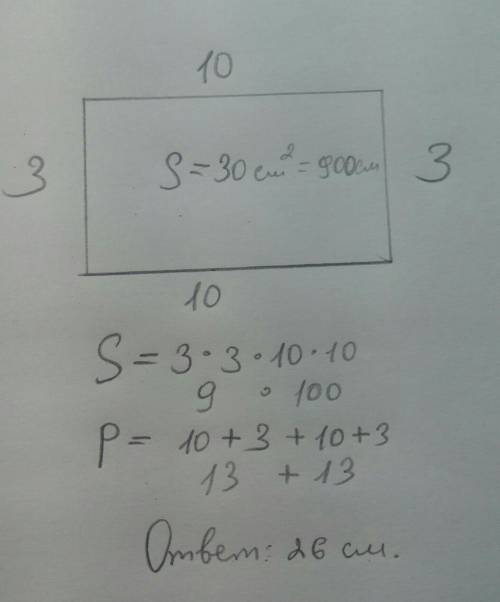 10
3 S = 30 см² = 900см 3
10
S = 3 · 3 · 10 · 10
9 · 100
P = 10 + 3 + 10 + 3
13 + 13
Ответ: 26 см.